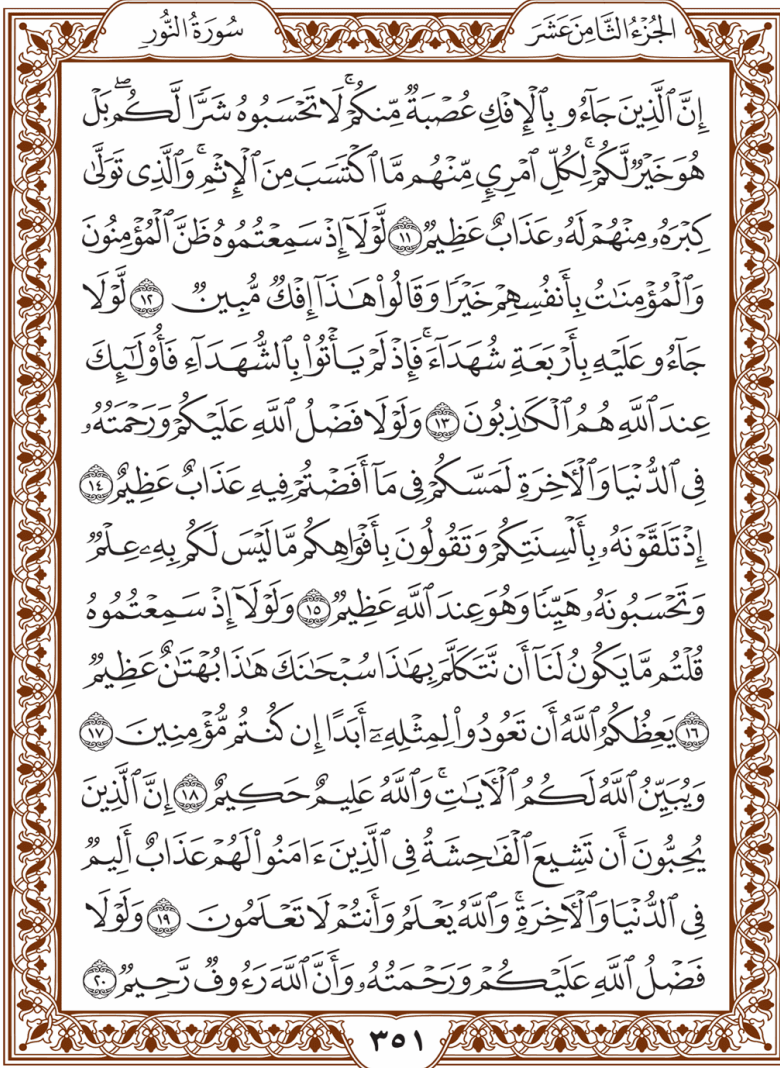 الجُزْءُ الثَّامِنَ عَشَرَ
سُورَةُ النُّورِ
إِنَّ ٱلَّذِينَ جَآءُو بِٱلْإِفْكِ عُصْبَةٌ مِّنكُمْ ۚ لَا تَحْسَبُوهُ شَرًّا لَّكُم ۖ بَلْ
هُوَ خَيْرٌ لَّكُمْ ۚ لِكُلِّ ٱمْرِئٍ مِّنْهُم مَّا ٱكْتَسَبَ مِنَ ٱلْإِثْمِ ۚ وَٱلَّذِى تَوَلَّىٰ
كِبْرَهُۥ مِنْهُمْ لَهُۥ عَذَابٌ عَظِيمٌ ١١ لَّوْلَآ إِذْ سَمِعْتُمُوهُ ظَنَّ ٱلْمُؤْمِنُونَ
وَٱلْمُؤْمِنَٰتُ بِأَنفُسِهِمْ خَيْرًا وَقَالُوا۟ هَٰذَآ إِفْكٌ مُّبِينٌ ١٢ لَّوْلَا
جَآءُو عَلَيْهِ بِأَرْبَعَةِ شُهَدَآءَ ۚ فَإِذْ لَمْ يَأْتُوا۟ بِٱلشُّهَدَآءِ فَأُو۟لَٰٓئِكَ
عِندَ ٱللَّهِ هُمُ ٱلْكَٰذِبُونَ ١٣ وَلَوْلَا فَضْلُ ٱللَّهِ عَلَيْكُمْ وَرَحْمَتُهُۥ
فِى ٱلدُّنْيَا وَٱلْءَاخِرَةِ لَمَسَّكُمْ فِى مَآ أَفَضْتُمْ فِيهِ عَذَابٌ عَظِيمٌ ١٤
إِذْ تَلَقَّوْنَهُۥ بِأَلْسِنَتِكُمْ وَتَقُولُونَ بِأَفْوَاهِكُم مَّا لَيْسَ لَكُم بِهِۦ عِلْمٌ
وَتَحْسَبُونَهُۥ هَيِّنًا وَهُوَ عِندَ ٱللَّهِ عَظِيمٌ ١٥ وَلَوْلَآ إِذْ سَمِعْتُمُوهُ
قُلْتُم مَّا يَكُونُ لَنَآ أَن نَّتَكَلَّمَ بِهَٰذَا سُبْحَٰنَكَ هَٰذَا بُهْتَٰنٌ عَظِيمٌ
١٦ يَعِظُكُمُ ٱللَّهُ أَن تَعُودُوا۟ لِمِثْلِهِۦٓ أَبَدًا إِن كُنتُم مُّؤْمِنِينَ ١٧
وَيُبَيِّنُ ٱللَّهُ لَكُمُ ٱلْءَايَٰتِ ۚ وَٱللَّهُ عَلِيمٌ حَكِيمٌ ١٨ إِنَّ ٱلَّذِينَ
يُحِبُّونَ أَن تَشِيعَ ٱلْفَٰحِشَةُ فِى ٱلَّذِينَ ءَامَنُوا۟ لَهُمْ عَذَابٌ أَلِيمٌ
فِى ٱلدُّنْيَا وَٱلْءَاخِرَةِ ۚ وَٱللَّهُ يَعْلَمُ وَأَنتُمْ لَا تَعْلَمُونَ ١٩ وَلَوْلَا
فَضْلُ ٱللَّهِ عَلَيْكُمْ وَرَحْمَتُهُۥ وَأَنَّ ٱللَّهَ رَءُوفٌ رَّحِيمٌ ٢٠
٣٥١